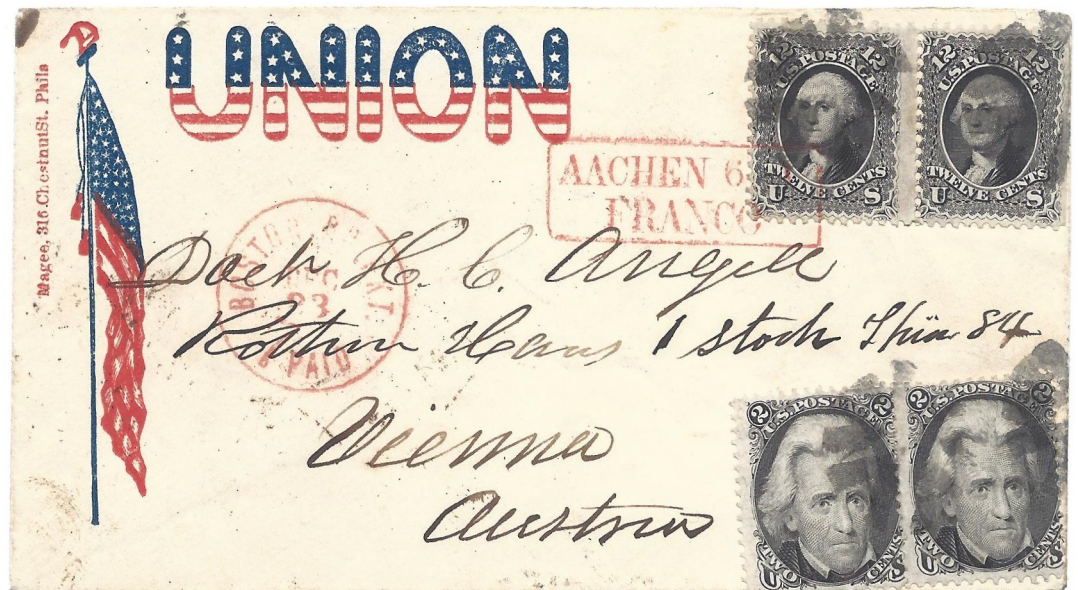 UNION
Magee, 316 Chestnut St. Phila
12 12
U.S. POSTAGE
TWELVE CENTS
U S
12 12
U.S. POSTAGE
TWELVE CENTS
U S
AACHEN 6
FRANCO
BOSTON BR. PKT.
DEC
23
PAID
Doct H. C. Angell
Rothen Haus 1 Stock Thür 84
Vienna
Austria
2 2
U.S. POSTAGE
TWO CENTS
U S
2 2
U.S. POSTAGE
TWO CENTS
U S